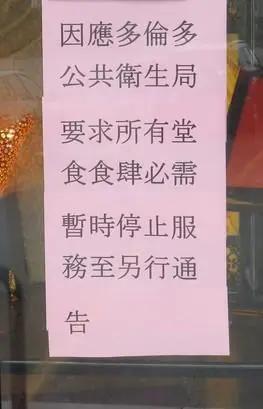 因應多倫多
公共衛生局
要求所有堂
食食肆必需
暫時停止服
務至另行通
告